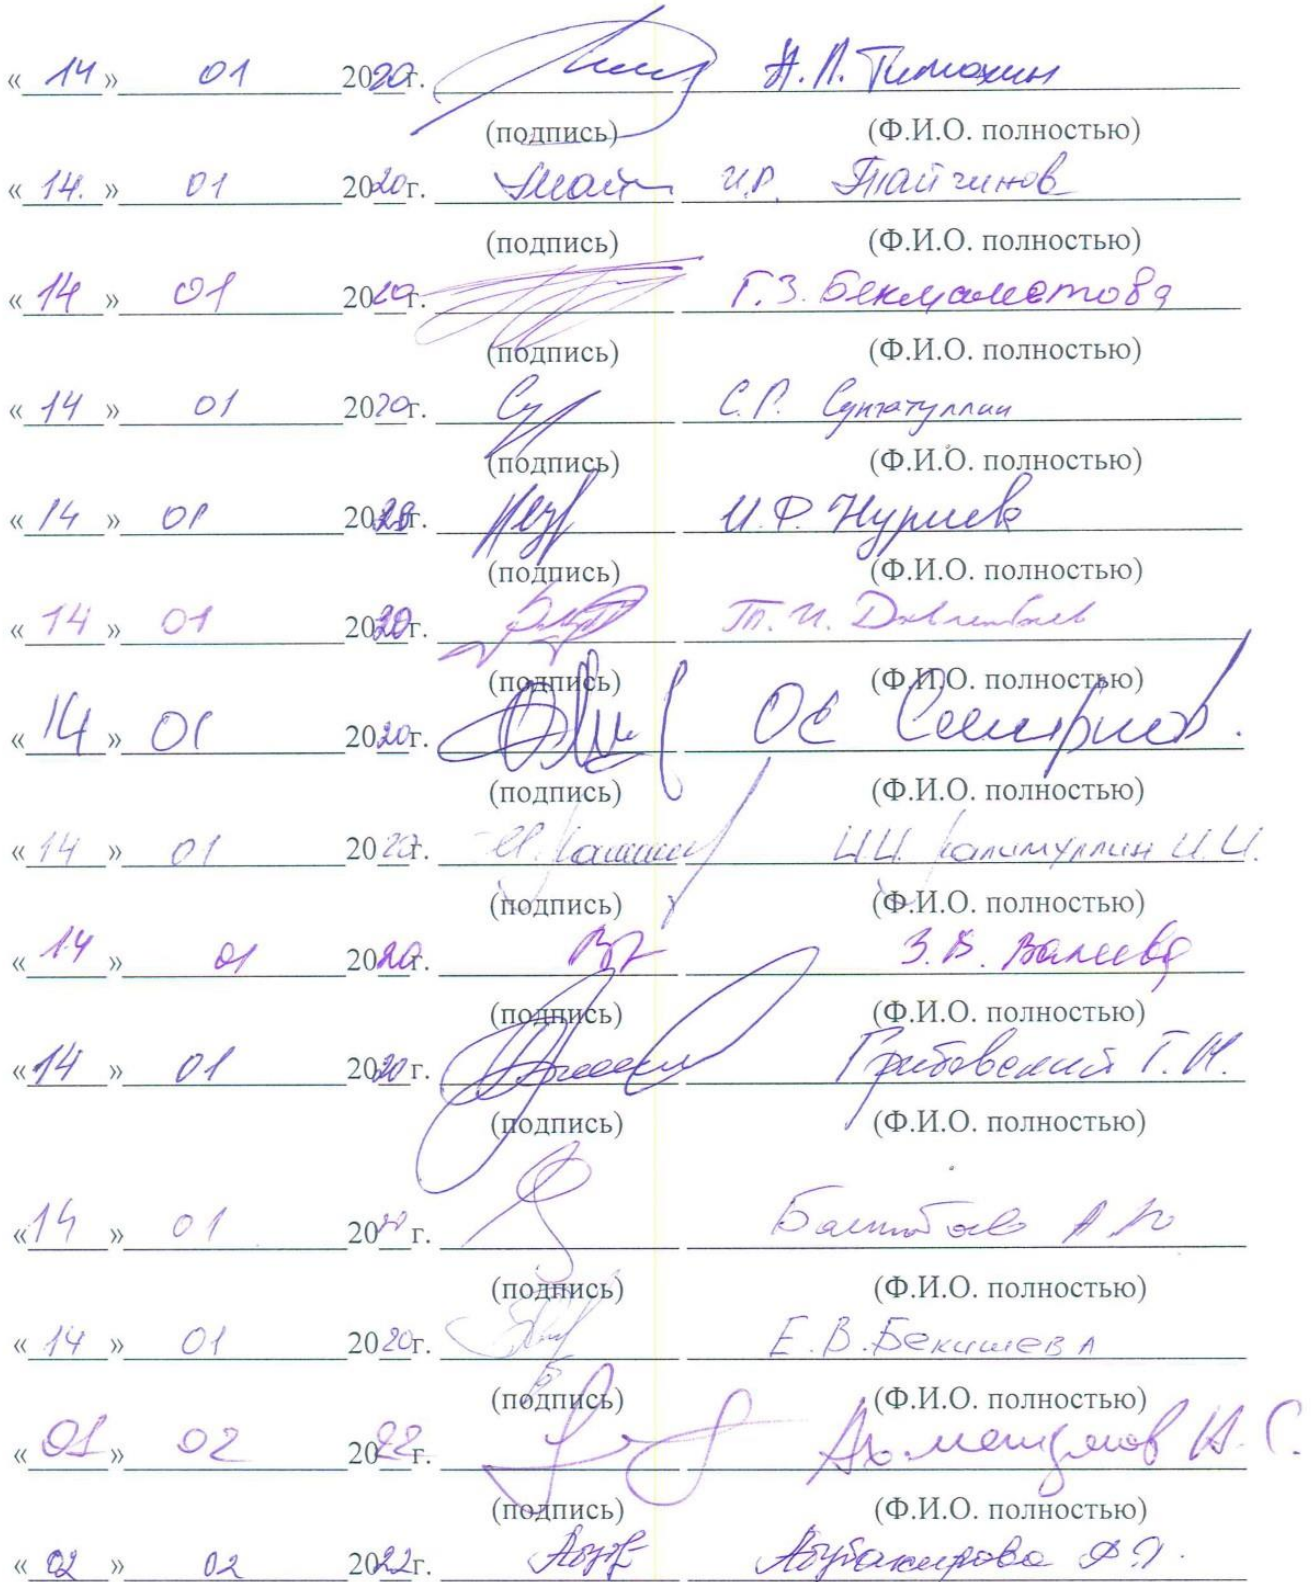 « 14 » 01 2020г. Н.П. Тимохин
(подпись) (Ф.И.О. полностью)
« 14. » 01 2020г. И.Р. Тайчинов
(подпись) (Ф.И.О. полностью)
« 14 » 01 2020г. Г.З. Бекмаметова
(подпись) (Ф.И.О. полностью)
« 14 » 01 2020г. С.Р. Сунгатуллин
(подпись) (Ф.И.О. полностью)
« 14 » 01 2020г. И.Ф. Нуриев
(подпись) (Ф.И.О. полностью)
« 14 » 01 2020г. Т.И. Давлетбаев
(подпись) (Ф.И.О. полностью)
« 14 » 01 2020г. ОЕ Смирнов.
(подпись) (Ф.И.О. полностью)
« 14 » 01 2020г. И.И. Галимуллин И.И.
(подпись) (Ф.И.О. полностью)
« 14 » 01 2020г. З.В. Валеева
(подпись) (Ф.И.О. полностью)
« 14 » 01 2020г. Грибовский Т.И.
(подпись) (Ф.И.О. полностью)
« 14 » 01 2020г. А Ю
(подпись) (Ф.И.О. полностью)
« 14 » 01 2020г. Е.В. Бекишева
(подпись) (Ф.И.О. полностью)
« 01 » 02 2022г. Ахметзянов И.С.
(подпись) (Ф.И.О. полностью)
« 02 » 02 2022г. Абубакирова